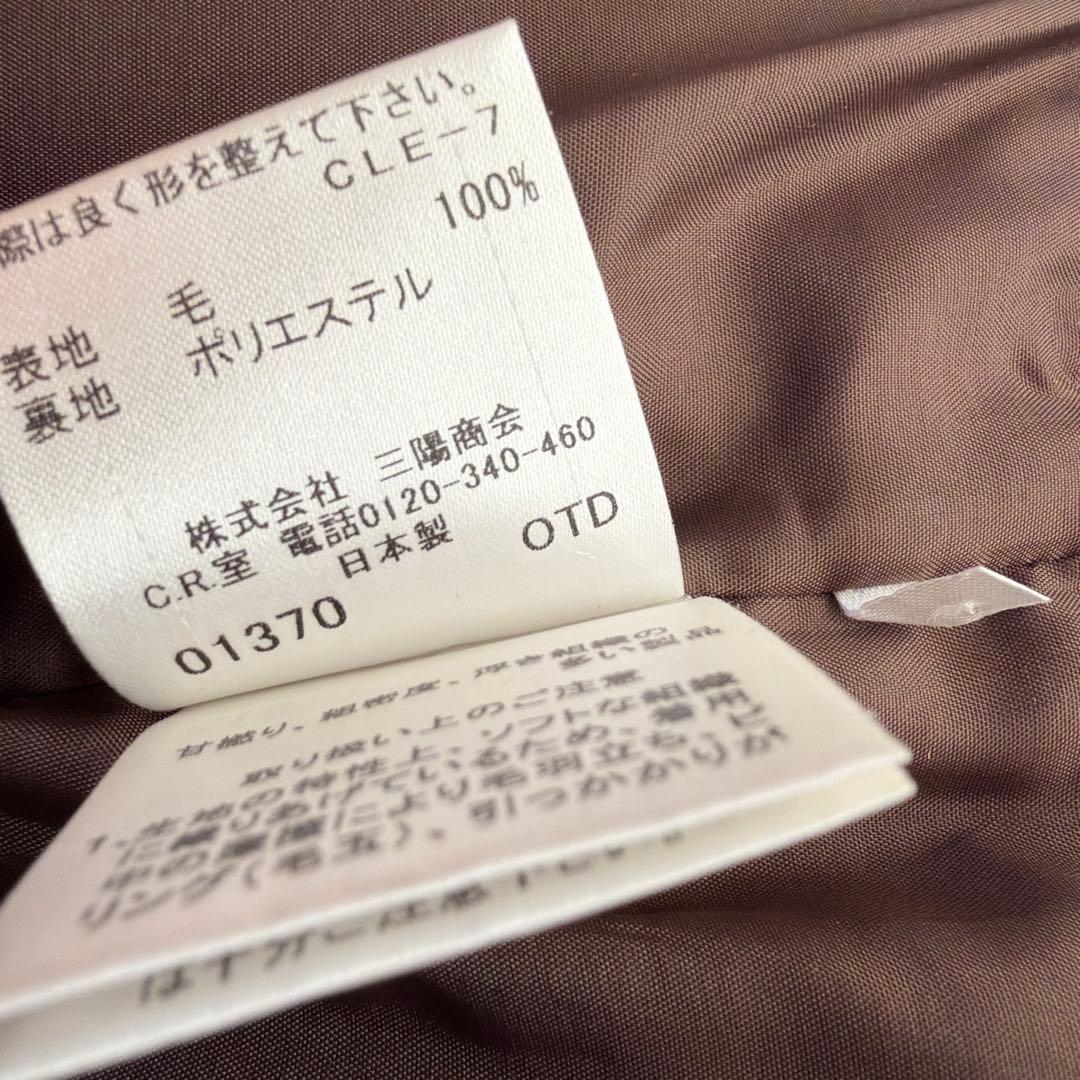 際は良く形を整えて下さい。
CLE-7
表地 毛 100%
裏地 ポリエステル
株式会社 三陽商会
C.R.室 電話0120-340-460
日本製 OTD
01370
甘撚り、粗密度、浮き組織の
多い製品
取り扱い上のご注意
1、生地の特性上、ソフトな組織
に織りあげているため、着用
中の摩擦により毛羽立ち、ピ
リング(毛玉)、引っかかりが
は十分ご注意下さい。